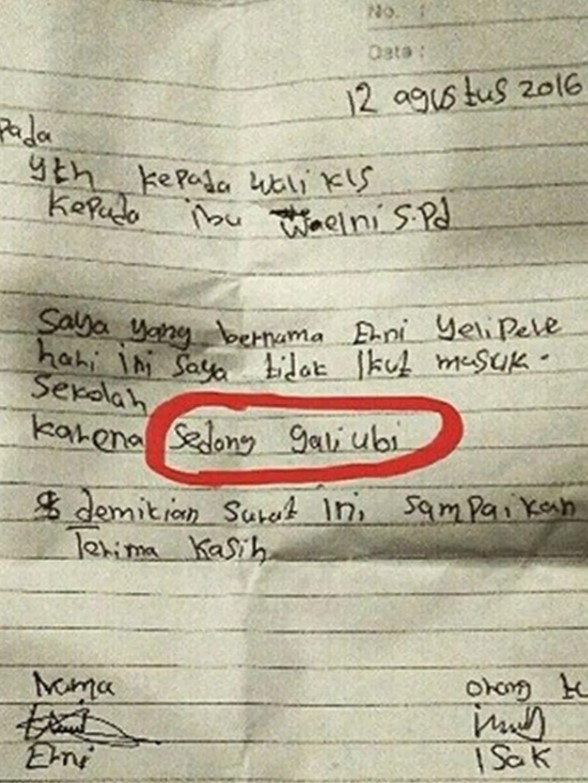 No. :
Date :
12 agustus 2016
pada
yth kepada wali kls
kepada ibu Waelni S.Pd
Saya yang bernama Erni Yelipele
hari ini saya tidak Ikut masuk.
Sekolah
karena Sedang gali ubi
demikian Surat Ini Sampaikan
Terima Kasih
Nama
orang t
Erni
ISak